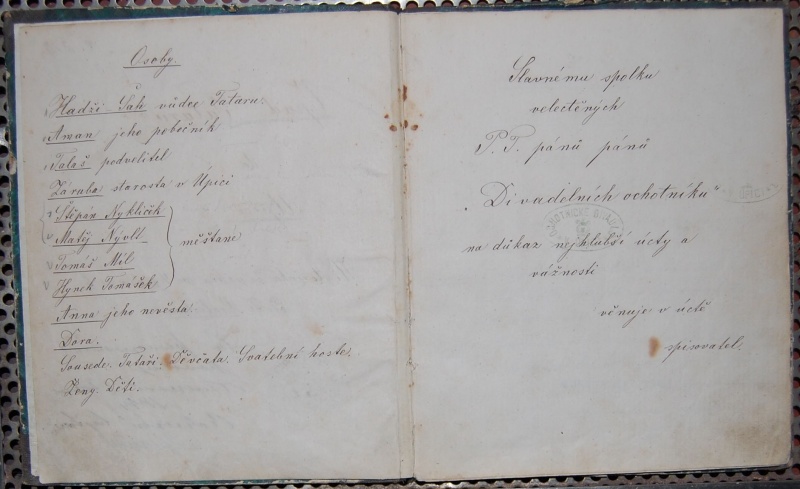 Osoby.
Hadži Šah vůdce Tatarů.
Aman jeho pobočník
Talaš podvelitel
Záruba starosta v Úpici
Štěpán Nyklíček
Matěj Nývlt
Tomáš Míl
Hynek Tomášek
měštané
Anna jeho nevěsta.
Dora.
Sousedé. Tataři. Děvčata. Svatební hosté.
Ženy. Děti.
Slavnému spolku
velectěných
P. T. pánů pánů
„Divadelních ochotníků“
na důkaz nejhlubší úcty a
vážnosti
věnuje v úctě
spisovatel.